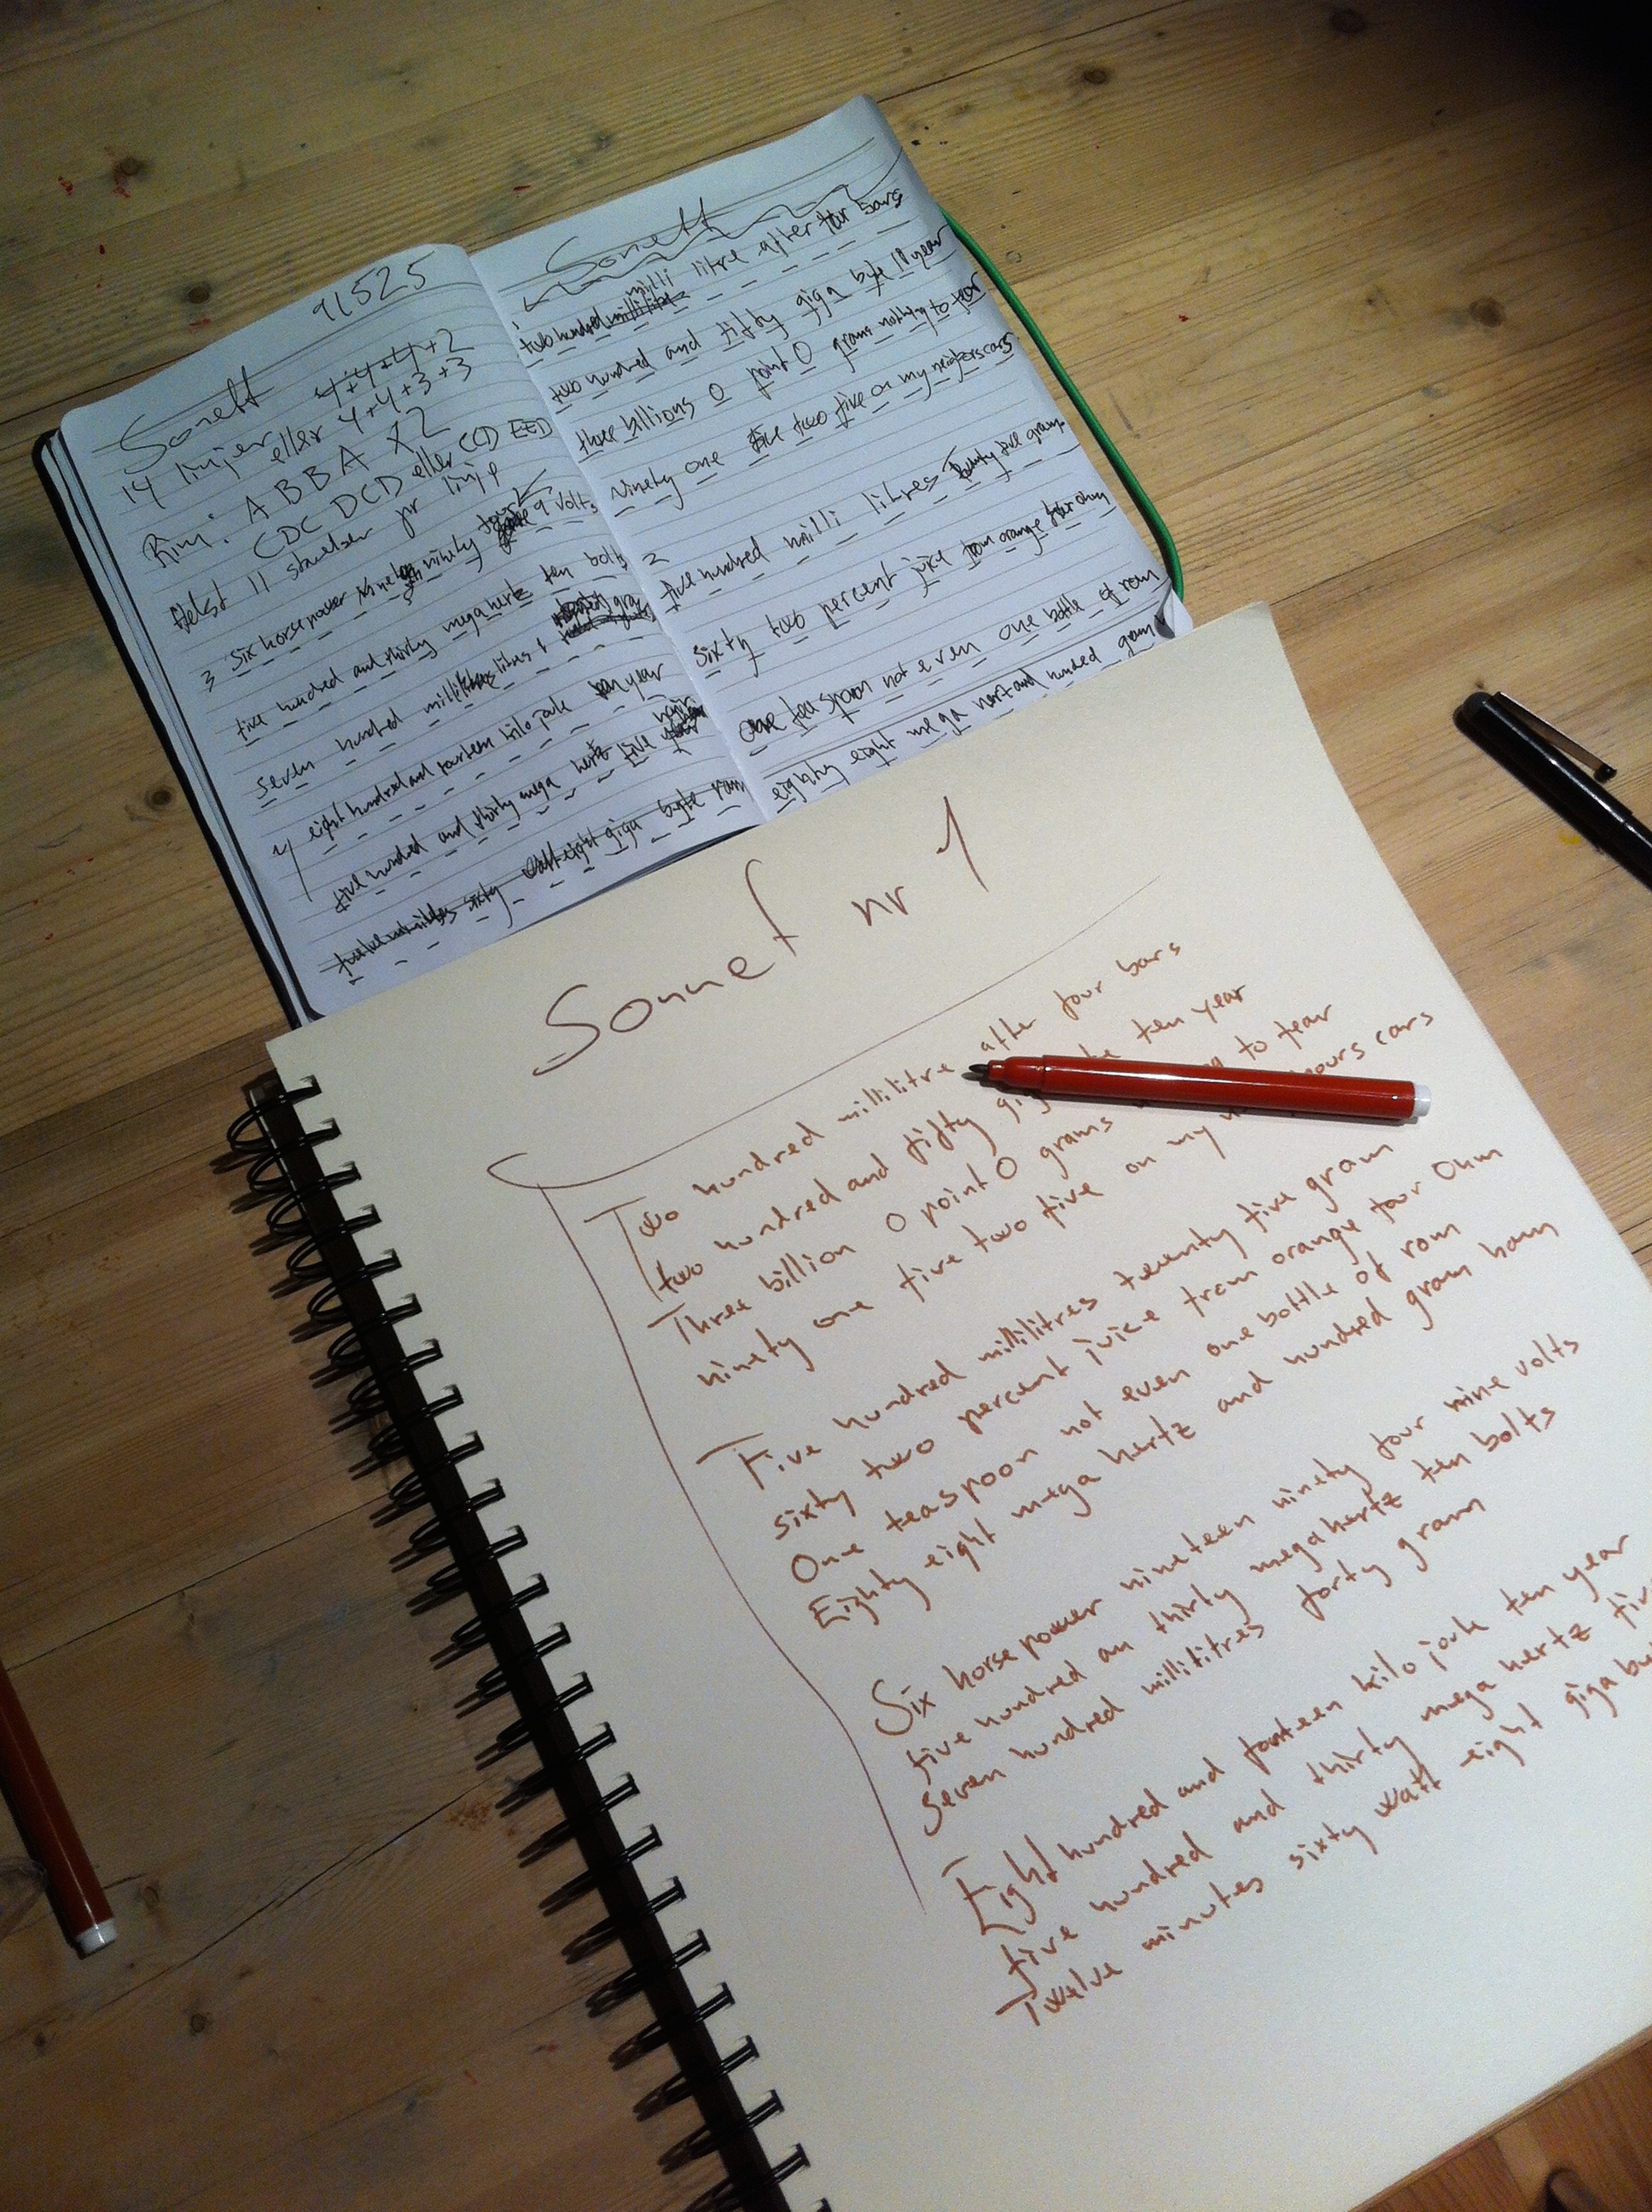 Sonett 91525
14 linjer 4+4+4+2
eller 4+4+3+3
Rim: ABBA X2
CDC DCD eller CCD EED
Helst 11 stavelser pr linje
3 six horse power ninety four 9 volts
five hundred and thirty mega hertz ten bolts
seven hundred milli litres
4 eight hundred and fourteen kilo joule ten year
five hundred and thirty mega hertz five
twelve minutes sixty watt eight giga byte ram
Sonett
1
two hundred milli litre after four bars
two hundred and fifty giga byte 10 year
three billions 0 point 0 grams nothing to fear
ninety one five two five on my neigbers cars
2
five hundred milli litres twenty five gram
sixty two percent juice from orange four ohm
one tea spoon not even one bottle of rom
eighty eight mega hertz and hundred gram
Sonnet nr 1
Two hundred millilitre after four bars
two hundred and fifty ten year
Three billion 0 point 0 grams to fear
ninety one five two five on my cars
Five hundred millilitres twenty five gram
sixty two percent juice from orange four Ohm
One teaspoon not even one bottle of rom
Eighty eight mega hertz and hundred gram ham
Six horsepower nineteen ninety four nine volts
five hundred an thirty megahertz ten bolts
Seven hundred millilitres forty gram
Eight hundred and fourteen kilo joule ten year
five hundred and thirty mega hertz
Twelve minutes sixty watt eight giga